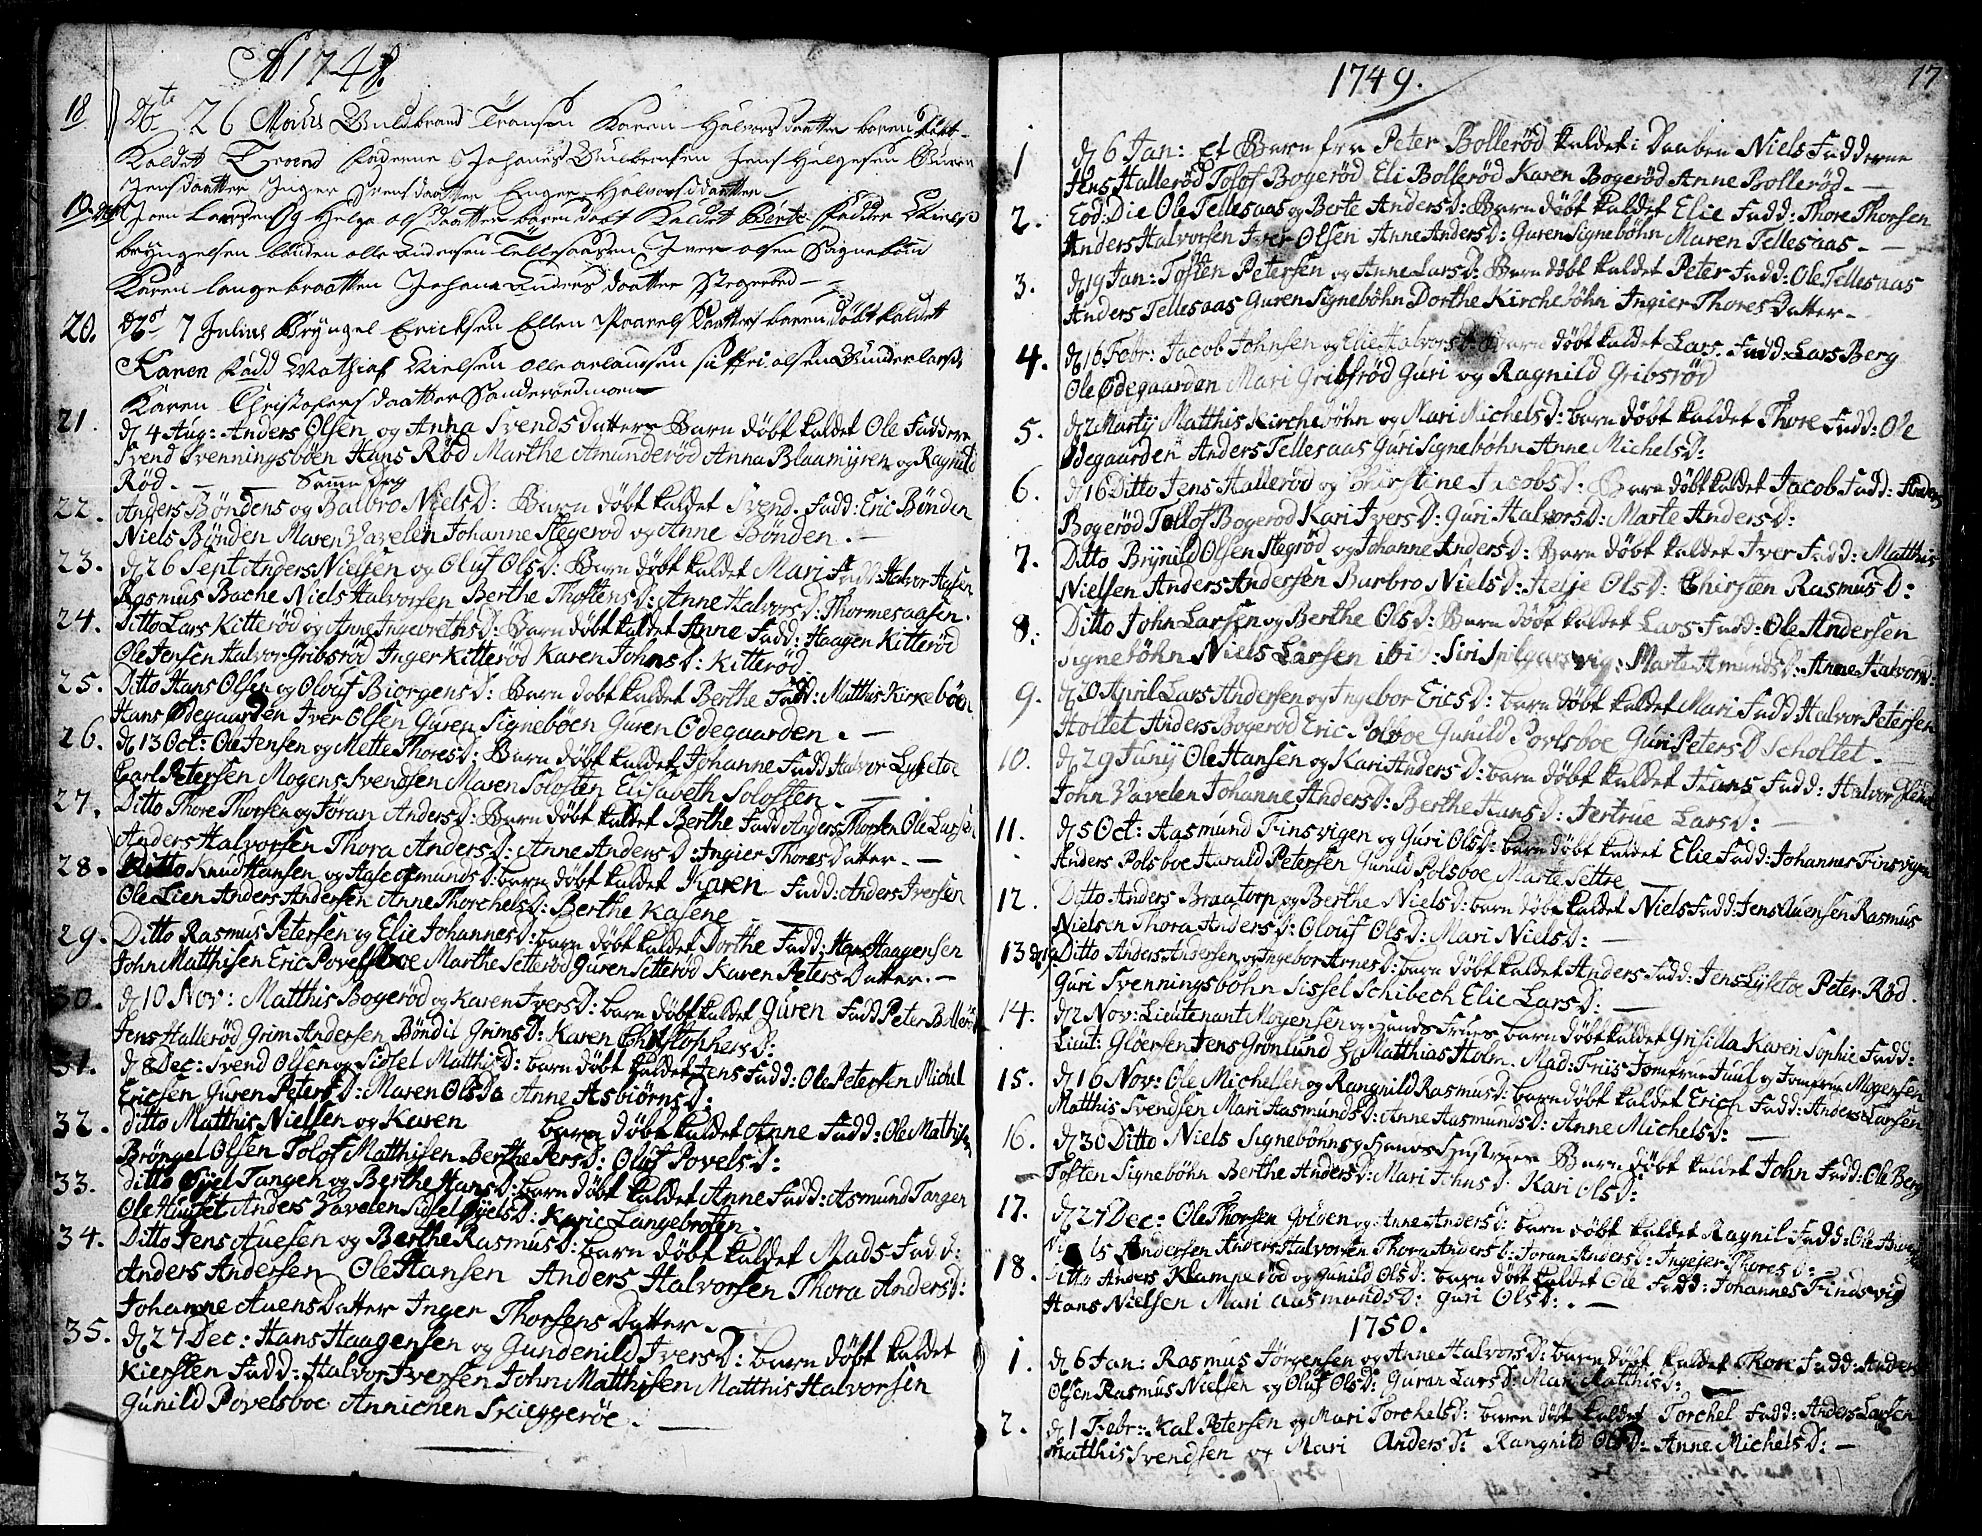 Ao 1748.
18 26 Guldbrand Transen Karen Halvorsdaatter baren døbt
Kaldet Trond faderne Johanes Gulbransen Jens Helgesen Guren
Jensdaatter Inger Svensdaatter Halvorsdaatter
19 Joen Larsen og Helge olsdaatter baren døbt Kaldet Berte Fadder Niels
bryngelsen bønden olle andersen Tellesaasen Iver olsen Signebøn
Karen langebraatten Johane Anders daatter Stegerød
20. 7 Julius Bryngel Ericksen Ellen Paarels daatters baren døbt kaldet
Karen fadd Mathias Nielsen olle
Karen Christofersdaatter Sanderøedmoen
21. d 4 Aug: Anders Olsen og Anna Svends datters Barn døbt kaldet Ole Faddere
Svend Svenningsbøen Hans Rød Marthe Amunderød Anna Blaamyren og Ragnild
Rød. — — Samme dag
22. Anders Bøndens og Balbro Niels D: Barn døbt kaldet Svend. Fadd: Eric Bønden
Niels Bønden Maren Vavelen Johanne Stegerod og Anne Bønden. —
23. d 26 Sept Anders Nielsen og Oluf Ols D: Barn døbt kaldet Mari Fadd: Halvor Aasen
Rasmus Bache Niels Halvorsen Berthe Thostens D: Anne Halvors D: Thormesaasen.
24. Ditto Lars Kitterød og Anne Ingevreths D: Barn døbt kaldet Anne Fadd: Haagen Kitterød
Ole Jensen Halvor Gribsrød Inger Kitterød Karen Johns D: Kitterød
25. Ditto Hans Olsen og Olouf Biorgens D: Barn dobt kaldet Berthe Fadd: Matthis Kirkebøen
Hans Ødegaarden Iver Olsen Guren Signebøen Guren Odegaarden. —
26. d 13 Oct: Ole Jensen og Mette Thores D: Barn døbt kaldet Johanne Fadd Halvor Lyketoe
Carl Petersen Mogens Svendsen Maren Solosten Elisaveth Solosten. —
27. Ditto Thore Thorsen og Jøran Anders D: Barn døbt kaldet Berthe Fadd Anders Thorsen Ole Larsen
Anders Halvorsen Thora Anders D: Anne Anders D: Ingier Thores Datter. —
28. Ditto Knud Hansen og Aase Asmunds D: barn døbt kaldet Karen Fadd: Anders Iversen
Ole Lien Anders Andersen Anne Thorchels D: Berthe Kasene
29. Ditto Rasmus Petersen og Elie Johannes D: barn døbt kaldet Dorthe Fadd: Hans Haagensen
John Matthisen Eric Povelsboe Marthe Setterød Guren Setterød Karen Peters Datter. —
30. d 10 Nov: Matthis Bogerød og Karen Ivers D: barn døbt kaldet Guren Fadd Peter Bollerød
Jens Hallerød Grim Andersen Bøndil Grims D: Karen Christophers D:
31. d 8 Dec: Svend Olsen og Sidsel Matthis D: barn døbt kaldet Jens Fadd: Ole Petersen Michel
Ericsen Guren Peters D: Maren Ols D Anne Asbiørns D:
32. Ditto Matthis Nielsen og Karen barn døbt kaldet Anne Fadd: Ole Mathisen
Brøngel Olsen Tolof Matthisen Berthe Pers D: Oluf Povels D:
33. Ditto Tangen og Berthe Hans D: barn døbt kaldet Anne Fadd: Asmund Tangen
Ole Huuset Anders Vavelen Sidsel D: Karie Langebroten.
34. Ditto Jens Auesen og Berthe Rasmus D: barn døbt kaldet Mads Fadd:
Anders Andersen Ole Hansen Anders Halvorsen Thora Anders D:
Johanne Auens Datter Inger Thorsens Datter.
35. d 27 Dec: Hans Haagensen og Gundenild Ivers D: barn døbt kaldet
Kiersten Fadd: Halvor Iversen John Matthisen Matthis Halvorsen
Gunild Povelsboe Annichen Skieggerøe. —
17
1749.
1 d 6 Jan: Et Barn fra Peter Bollerød kaldet i Daaben Niels Fadderne
Jens Hallerød Tolof Bogerød Eli Bollerød Karen Bogerød Anne Bollerød. —
2. Eod: Die Ole Tellesaas og Berte Anders D: Barn døbt kaldet Elie Fadd: Thore Thorsen
Anders Halvorsen Iver Olsen Anne Anders D: Guren Signebøhn Maren Tellesaas. —
3. d 19 Jan: Tosten Petersen og Anne Lars D: Barn døbt kaldet Peter Fadd: Ole Tellesaas
Anders Tellesaas Guren Signebøhn Dorthe Kirchebøhn Ingier Thores Datter. —
4. d 16 Febr: Jacob Johnsen og Elie Halvors D: Barn døbt kaldet Lars. Fadd. Lars Berg
Ole Ødegaarden Mari Gribsrød Guri og Ragnild Gribsrød
5. d 2 Martij Matthis Kirchebøhn og Mari Michels D: barn døbt kaldet Thore Fadd: Ole
Ødegaarden Anders Tellesaas Guri Signebohn Anne Michels D:
6. d 16 Ditto Jens Hallerød og Chirstine Jacobs D: Barn døbt kaldet Jacob Fadd: Anders
Bogerød Tollof Bogerod Kari Ivers D: Guri Halvors D: Marte Anders D:
7. Ditto Brynild Olsen Stegrød og Johanne Anders D: Barn døbt kaldet Iver Fadd: Matthis
Nielsen Anders Andersen Barbro Niels D: Helje Ols D: Chirsten Rasmus D:
8. Ditto John Larsen og Berthe Ols D: Barn døbt kaldet Lars Fadd: Ole Andersen
Signebøhn Niels Larsen ibid: Siri Spilgarsvig: Marte Amunds D: Anne Halvors D:
9. d 20 April Lars Andersen og Ingebor Erics D: barn døbt kaldet Mari Fadd Halvor Petersen
Holtet Anders Bogerod Eric Polsboe Gunild Povlsboe Guri Peters D Scholtet.
10. d 29 Junij Ole Hansen og Kari Anders D: barn døbt kaldet Hans Fadd: Halvor
John Vavelen Johanne Anders D: Berthe Hans D: Jertrue Lars D: —
11. d 5 Oct: Aasmund Finsvigen og Guri Ols D: barn døbt kaldet Elie Fadd: Johannes Finsvigen
Anders Polsboe Harald Petersen Gunild Polsboe Marte Settre
12. Ditto Anders Braatorp og Berthe Niels D: barn døbt kaldet Niels Fadd: Jens Auensen Rasmus
Nielsen Thora Anders D: Olouf Ols D: Mari Niels D: —
13 d 19 Ditto Anders Andersen og Ingebor Arnes D: barn døbt kaldet Anders Fadd: Jens Lyketoe Peter Rød.
Guri Svenningsbohn Sissel Schibech Elie Lars D: —
14. d 2 Nov: Lieutenant Mogensen og Hands Frues barn døbt kaldet Grisilla Karen Sophie Fadd:
Lieut: Gløersen Jens Grønlund Hr Matthias Holm. Mad: Friis Jomfrue Juul og Jomfrue Mogensen
15. d 16 Nov: Ole Michellen og Rangnild Rasmus D: barn døbt kaldet Erich Fadd: Anders Larsen
Matthis Svendsen Mari Aasmunds D: Anne Aasmunds D: Anne Michels D:
16. d 30 Ditto Niels Signebøhns og Hans Hustrues Barn døbt kaldet John Fadd: Ole Berg
Tosten Signebøhn Berthe Anders D: Mari Johns D: Kari Ols D:
17. d 27 Dec: Ole Thorsen og Anne Anders D: barn døbt kaldet Ragnil Fadd: Ole
Niels Andersen Anders Halvorsen Thora Anders D: Joran Anders D: Ingejer Thores D: —
18. Ditto Anders Klamperød og Gunild Ols D: barn døbt kaldet Ole Fadd: Johannes Findsvig
Hans Nielsen Mari Aasmunds D: Guri Ols D: . —
1750.
1. d 6 Jan: Rasmus Jørgensen og Anne Halvors D: barn døbt kaldet Thore Fadd: Anders
Olsen Rasmus Nielsen og Oluf Ols D: Guran Lars D: Mari Matthis D:
2. d 1 Febr: Kal Petersen og Mari Torchels D: barn døbt kaldet Torchel Fadd: Anders Larsen
Matthis Svendsen og Mari Anders D: Rangnild Ols D: Anne Michels D: —